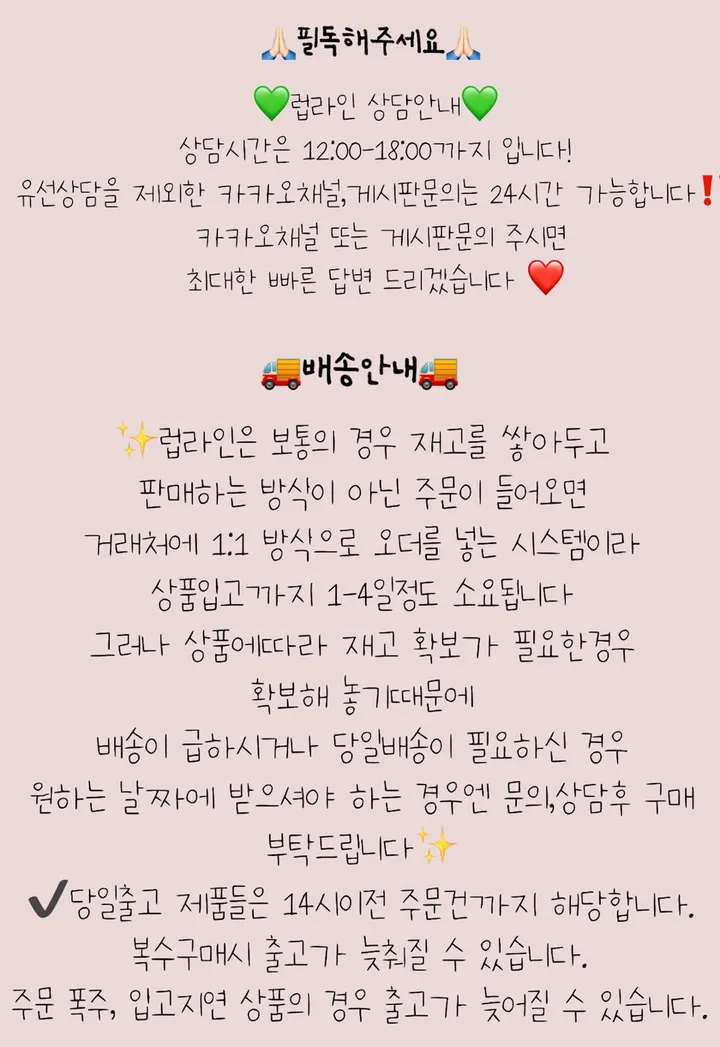 🙏🏻필독해주세요🙏🏻
💚럽라인 상담안내💚
상담시간은 12:00-18:00까지 입니다!
유선상담을 제외한 카카오채널,게시판문의는 24시간 가능합니다❗
카카오채널 또는 게시판문의 주시면
최대한 빠른 답변 드리겠습니다 ❤️
🚚배송안내🚚
✨럽라인은 보통의 경우 재고를 쌓아두고
판매하는 방식이 아닌 주문이 들어오면
거래처에 1:1 방식으로 오더를 넣는 시스템이라
상품입고까지 1-4일정도 소요됩니다
그러나 상품에따라 재고 확보가 필요한경우
확보해 놓기때문에
배송이 급하시거나 당일배송이 필요하신 경우
원하는 날짜에 받으셔야 하는 경우엔 문의,상담후 구매
부탁드립니다✨
✔당일출고 제품들은 14시이전 주문건까지 해당합니다.
복수구매시 출고가 늦춰질 수 있습니다.
주문 폭주, 입고지연 상품의 경우 출고가 늦어질 수 있습니다.